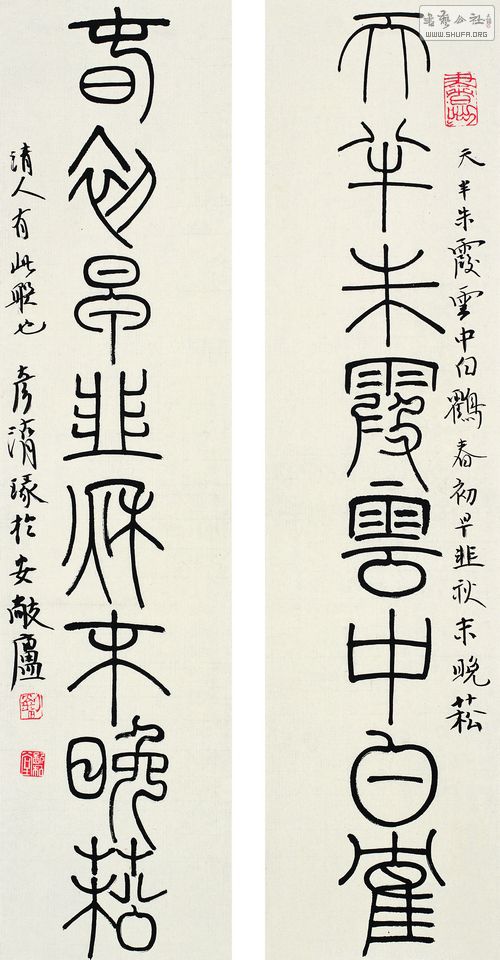 書藝公社
WWW.SHUFA.ORG
天半朱霞雲中白鸖春初早韭秋末晚菘
天半朱霞雲中白隺
春初早韭秋末晚菘
清人有此聯也
於安廬